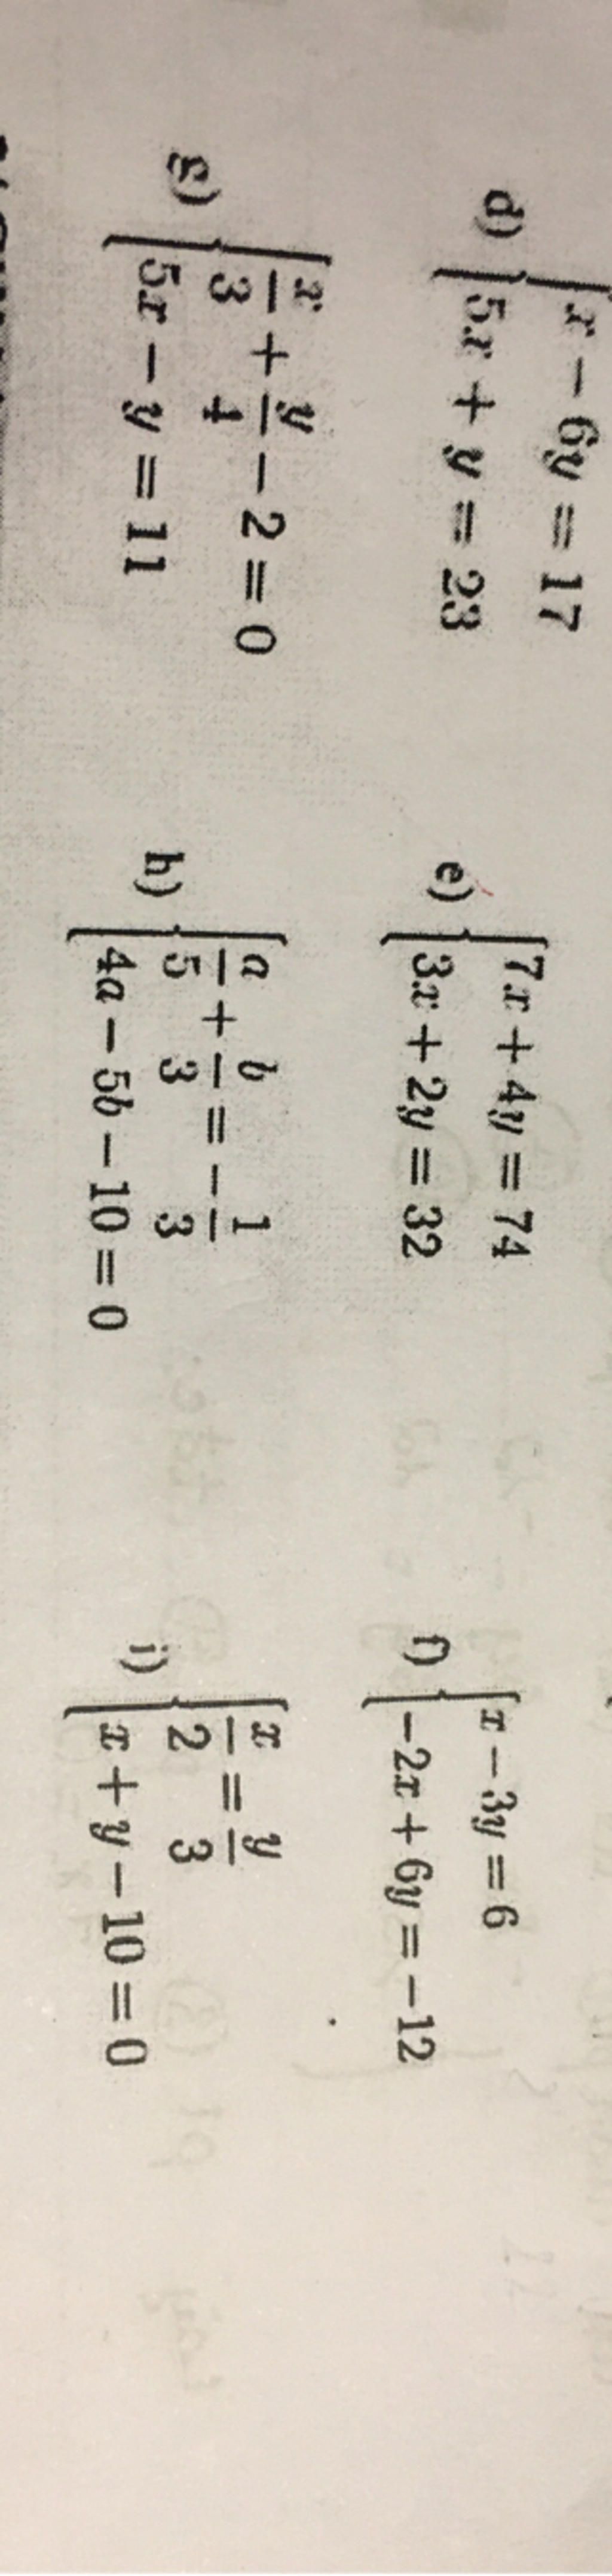 d) { x - 6y = 17
5x + y = 23
e) { 7x + 4y = 74
3x + 2y = 32
f) { x - 3y = 6
-2x + 6y = -12
g) { x/3 + y/4 - 2 = 0
5x - y = 11
h) { a/5 + b/3 = -1/3
4a - 5b - 10 = 0
i) { x/2 = y/3
x + y - 10 = 0